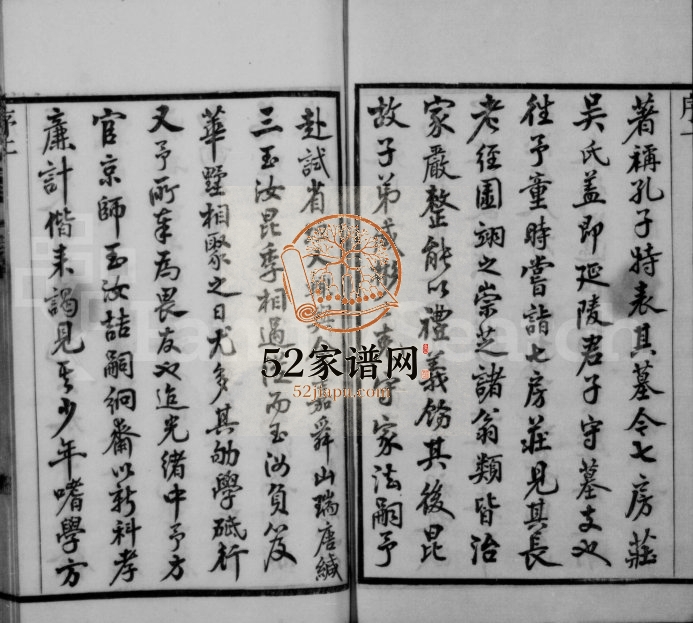 著稱孔子特表其墓今七房莊
吳氏蓋即延陵君子守墓支也
往予童時嘗詣七房莊見其長
老經圃翊之崇芝諸翁類皆治
家嚴整能以禮義飭其後昆
故子弟 家法嗣予
赴試省 嘉舜山瑞唐緘
三玉汝昆季相過 而玉汝負笈
華墅相聚之日尤多其劬學砥行
又予所奉為畏友也迨光緒中予方
官京師玉汝喆嗣絅齋以新科孝
廉計偕來謁見其少年嗜學方
序
52家谱网
52jiapu.com